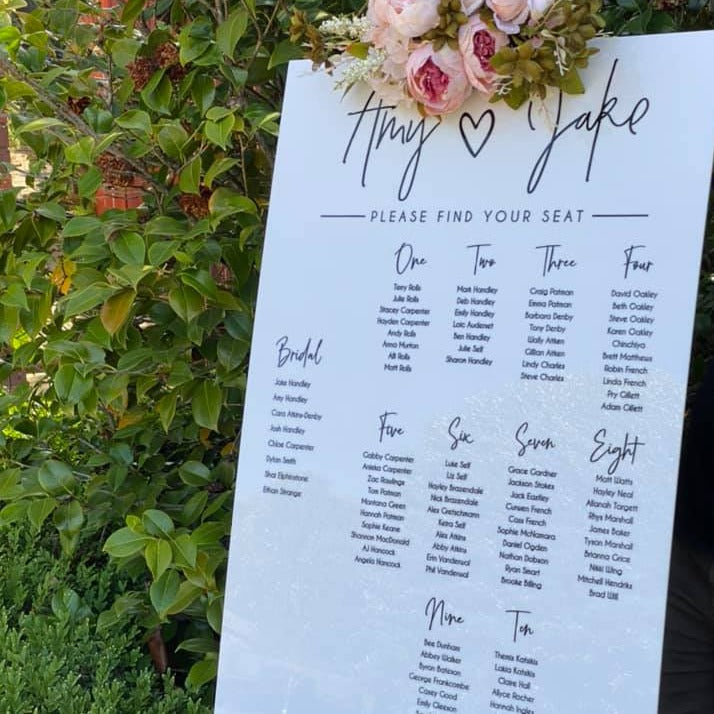 Amy Jake
PLEASE FIND YOUR SEAT
One
Terry Rolls
Julie Rolls
Stacey Carpenter
Hayden Carpenter
Andy Rolls
Anna Murton
Alli Rolls
Matt Rolls
Two
Mark Handley
Deb Handley
Emily Handley
Loic Audienet
Ben Handley
Julie Self
Sharon Handley
Three
Craig Patman
Emma Patman
Barbara Denby
Tony Denby
Wally Aitken
Gillian Aitken
Lindy Charles
Steve Charles
Four
David Oakley
Beth Oakley
Steve Oakley
Karen Oakley
Chinchiya
Brett Matthews
Robin French
Linda French
Pry Gillett
Adam Gillett
Bridal
Jake Handley
Amy Handley
Cara Atkins-Denby
Josh Handley
Chloe Carpenter
Dylan Smith
Shar Elphinstone
Ethan Strange
Five
Gabby Carpenter
Anieka Carpenter
Zac Rawlings
Tom Patman
Montana Green
Hannah Patman
Sophie Keane
Shannon MacDonald
AJ Hancock
Angela Hancock
Six
Luke Self
Liz Self
Hayley Brazendale
Nick Brazendale
Alex Gretschmann
Keira Self
Alex Atkins
Abby Atkins
Erin Vanderwal
Phil Vanderwal
Seven
Grace Gardner
Jackson Stokes
Jack Eastley
Curwen French
Cass French
Sophie McNamara
Daniel Ogden
Nathan Dobson
Ryan Smart
Brooke Billing
Eight
Matt Watts
Hayley Neal
Alianah Targett
Rhys Marshall
James Baker
Tyson Marshall
Brianna Grice
Nikki Wing
Mitchell Hendriks
Brad Will
Nine
Bee Dunham
Abbey Walker
Byron Bateson
George Frankcombe
Casey Good
Emily Gleeson
Ten
Themis Katsikis
Lakia Katsikis
Claire Hall
Allyce Rocher
Hannah Ingles